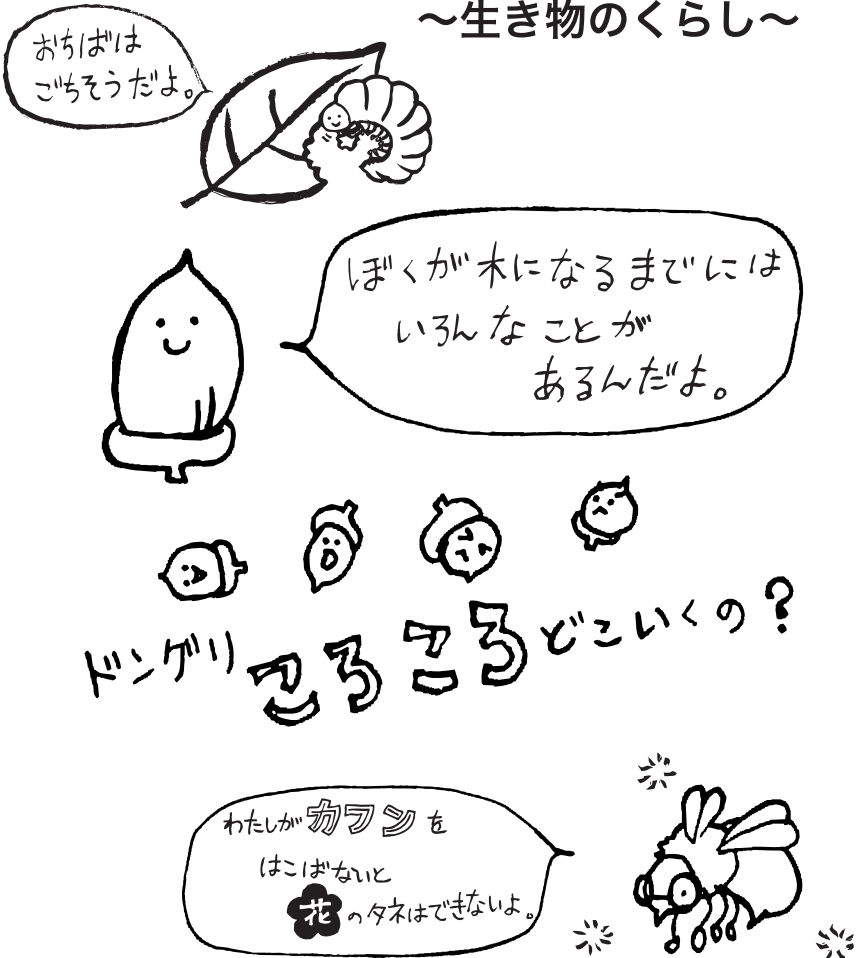 〜生き物のくらし〜
おちばは
ごちそうだよ。
ぼくが木になるまでには
いろんなことが
あるんだよ。
ドングリころころどこいくの?
わたしがカフンを
はこばないと
花のタネはできないよ。